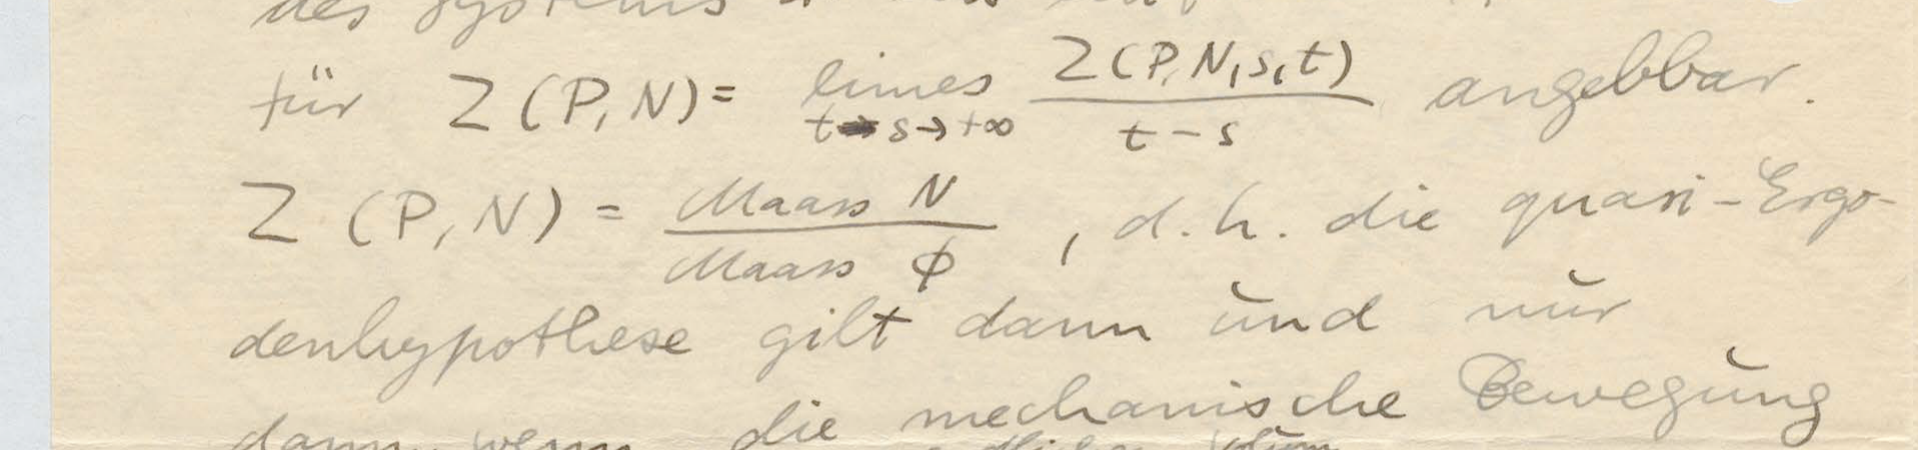 des Systems
für Z(P,N) = limes t→s→+∞ Z(P,N,s,t) / t-s angebbar.
Z (P,N) = Maass N / Maass ϕ , d.h. die quasi-Ergo-
denhypothese gilt dann und nur
dann, wenn die mechanische Bewegung